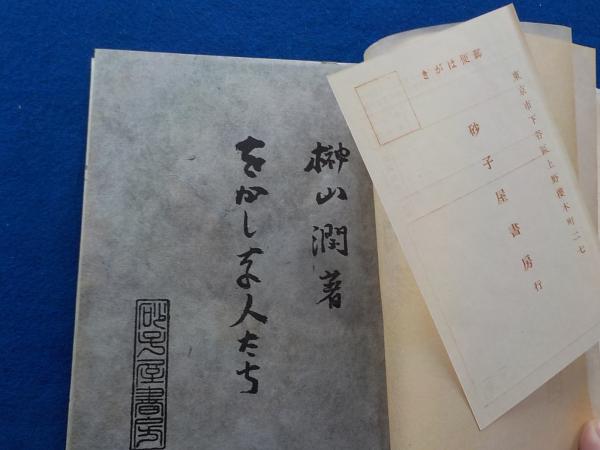 榊山潤著
をかしな人たち
砂子屋書房
郵便はがき
東京市下谷區上野櫻木町二七
砂子屋書房行